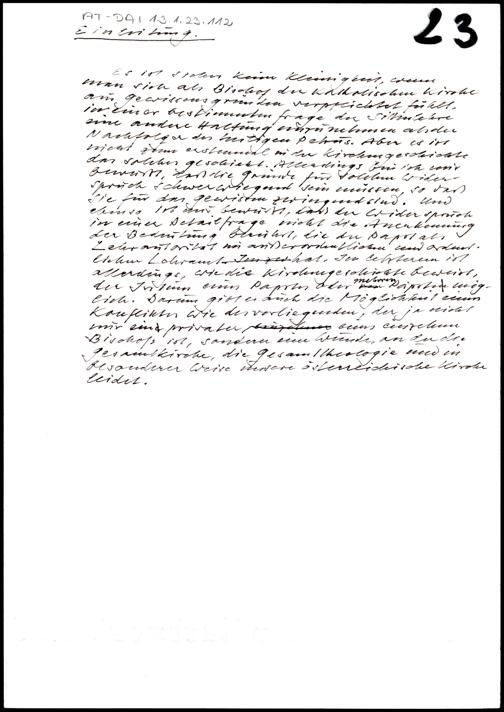 AT-DAI 13.1.23.112
23
Einleitung.
Es ist sicher keine Kleinigkeit, wenn
man sich als Bischof der Katholischen Kirche
aus Gewissensgründen verpflichtet fühlt,
in einer bestimmten Frage der Sittenlehre
eine andere Haltung einzunehmen als der
Nachfolger des heiligen Petrus. Aber es ist
nicht zum erstenmal in der Kirchengeschichte
das solches geschieht. Allerdings bin ich mir
bewußt, daß die Gründe für solchen Wider-
spruch schwerwiegend sein müssen, so daß
sie für das Gewissen zwingend sind. Und
ebenso ist mir bewußt, daß der Widerspruch
in einer Detailfrage nicht die Anerkennung
der Bedeutung berührt, die der Papst als
Lehrautorität im außerordentlichen und ordent-
lichen Lehramt hat. Im letzteren ist
allerdings, wie die Kirchengeschichte beweist,
der Irrtum eines Papstes oder mehrerer Päpste mög-
lich. Darum gibt es auch die Möglichkeit eines
Konfliktes wie des vorliegenden, der ja nicht
nur ein privater eines einzelnen
Bischofs ist, sondern eine Wunde, an der die
Gesamtkirche, die Gesamttheologie und in
besonderer Weise unsere österreichische Kirche
leidet.